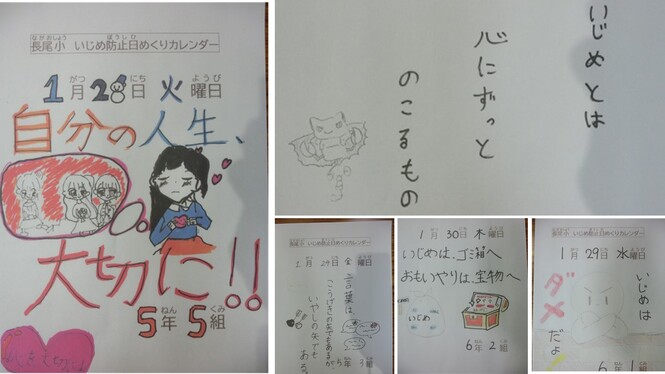 ながおしょう ぼうしひ
長尾小 いじめ防止日めくりカレンダー
がつ にち ようび
1月28日 火曜日
自分の人生、
大切に!!
ねん くみ
5年5組
いじめとは
心にずっと
のこるもの
長尾小 いじめ防止日めくりカレンダー
1月24日 金曜日
言葉は、
こうげきの矢でもあるが、
いやしの矢でもある
5年 3組
長尾小 いじめ防止日めくりカレンダー
1月30日 木曜日
いじめは、ゴミ箱へ
おもいやりは、宝物へ
いじめ
6年2組
長尾小 いじめ防止日めくりカレンダー
1月29日 水曜日
いじめは
ダメ
だよ
6年1